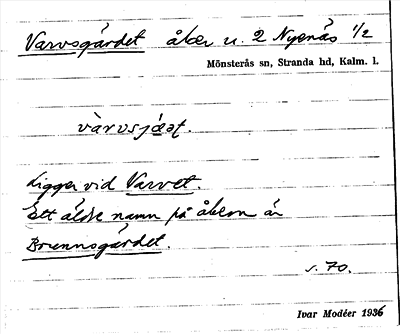 Varvsgärdet åker u. 2 Nyenäs 1/2
Mönsterås sn, Stranda hd, Kalm. l.
Ligger vid Varvet.
Ett äldre namn på åkern är
Brunnsgärdet.
s. 70.
Ivar Modéer 1936